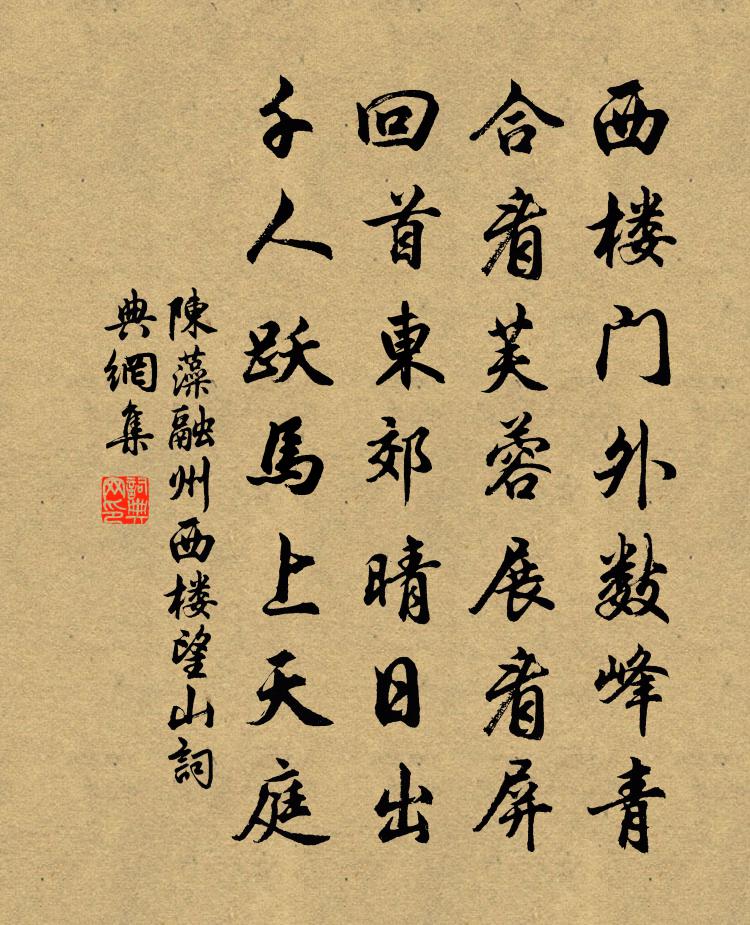 西楼门外数峰青
合看芙蓉展看屏
回首東郊晴日出
千人跃馬上天庭
陳藻融州西楼望山詞
典網集
詞典网印